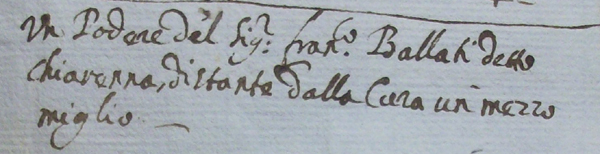 Un Podere del Sig.r Fran.co Ballati detto
Chiavenna, distante dalla Cura un mezzo
miglio